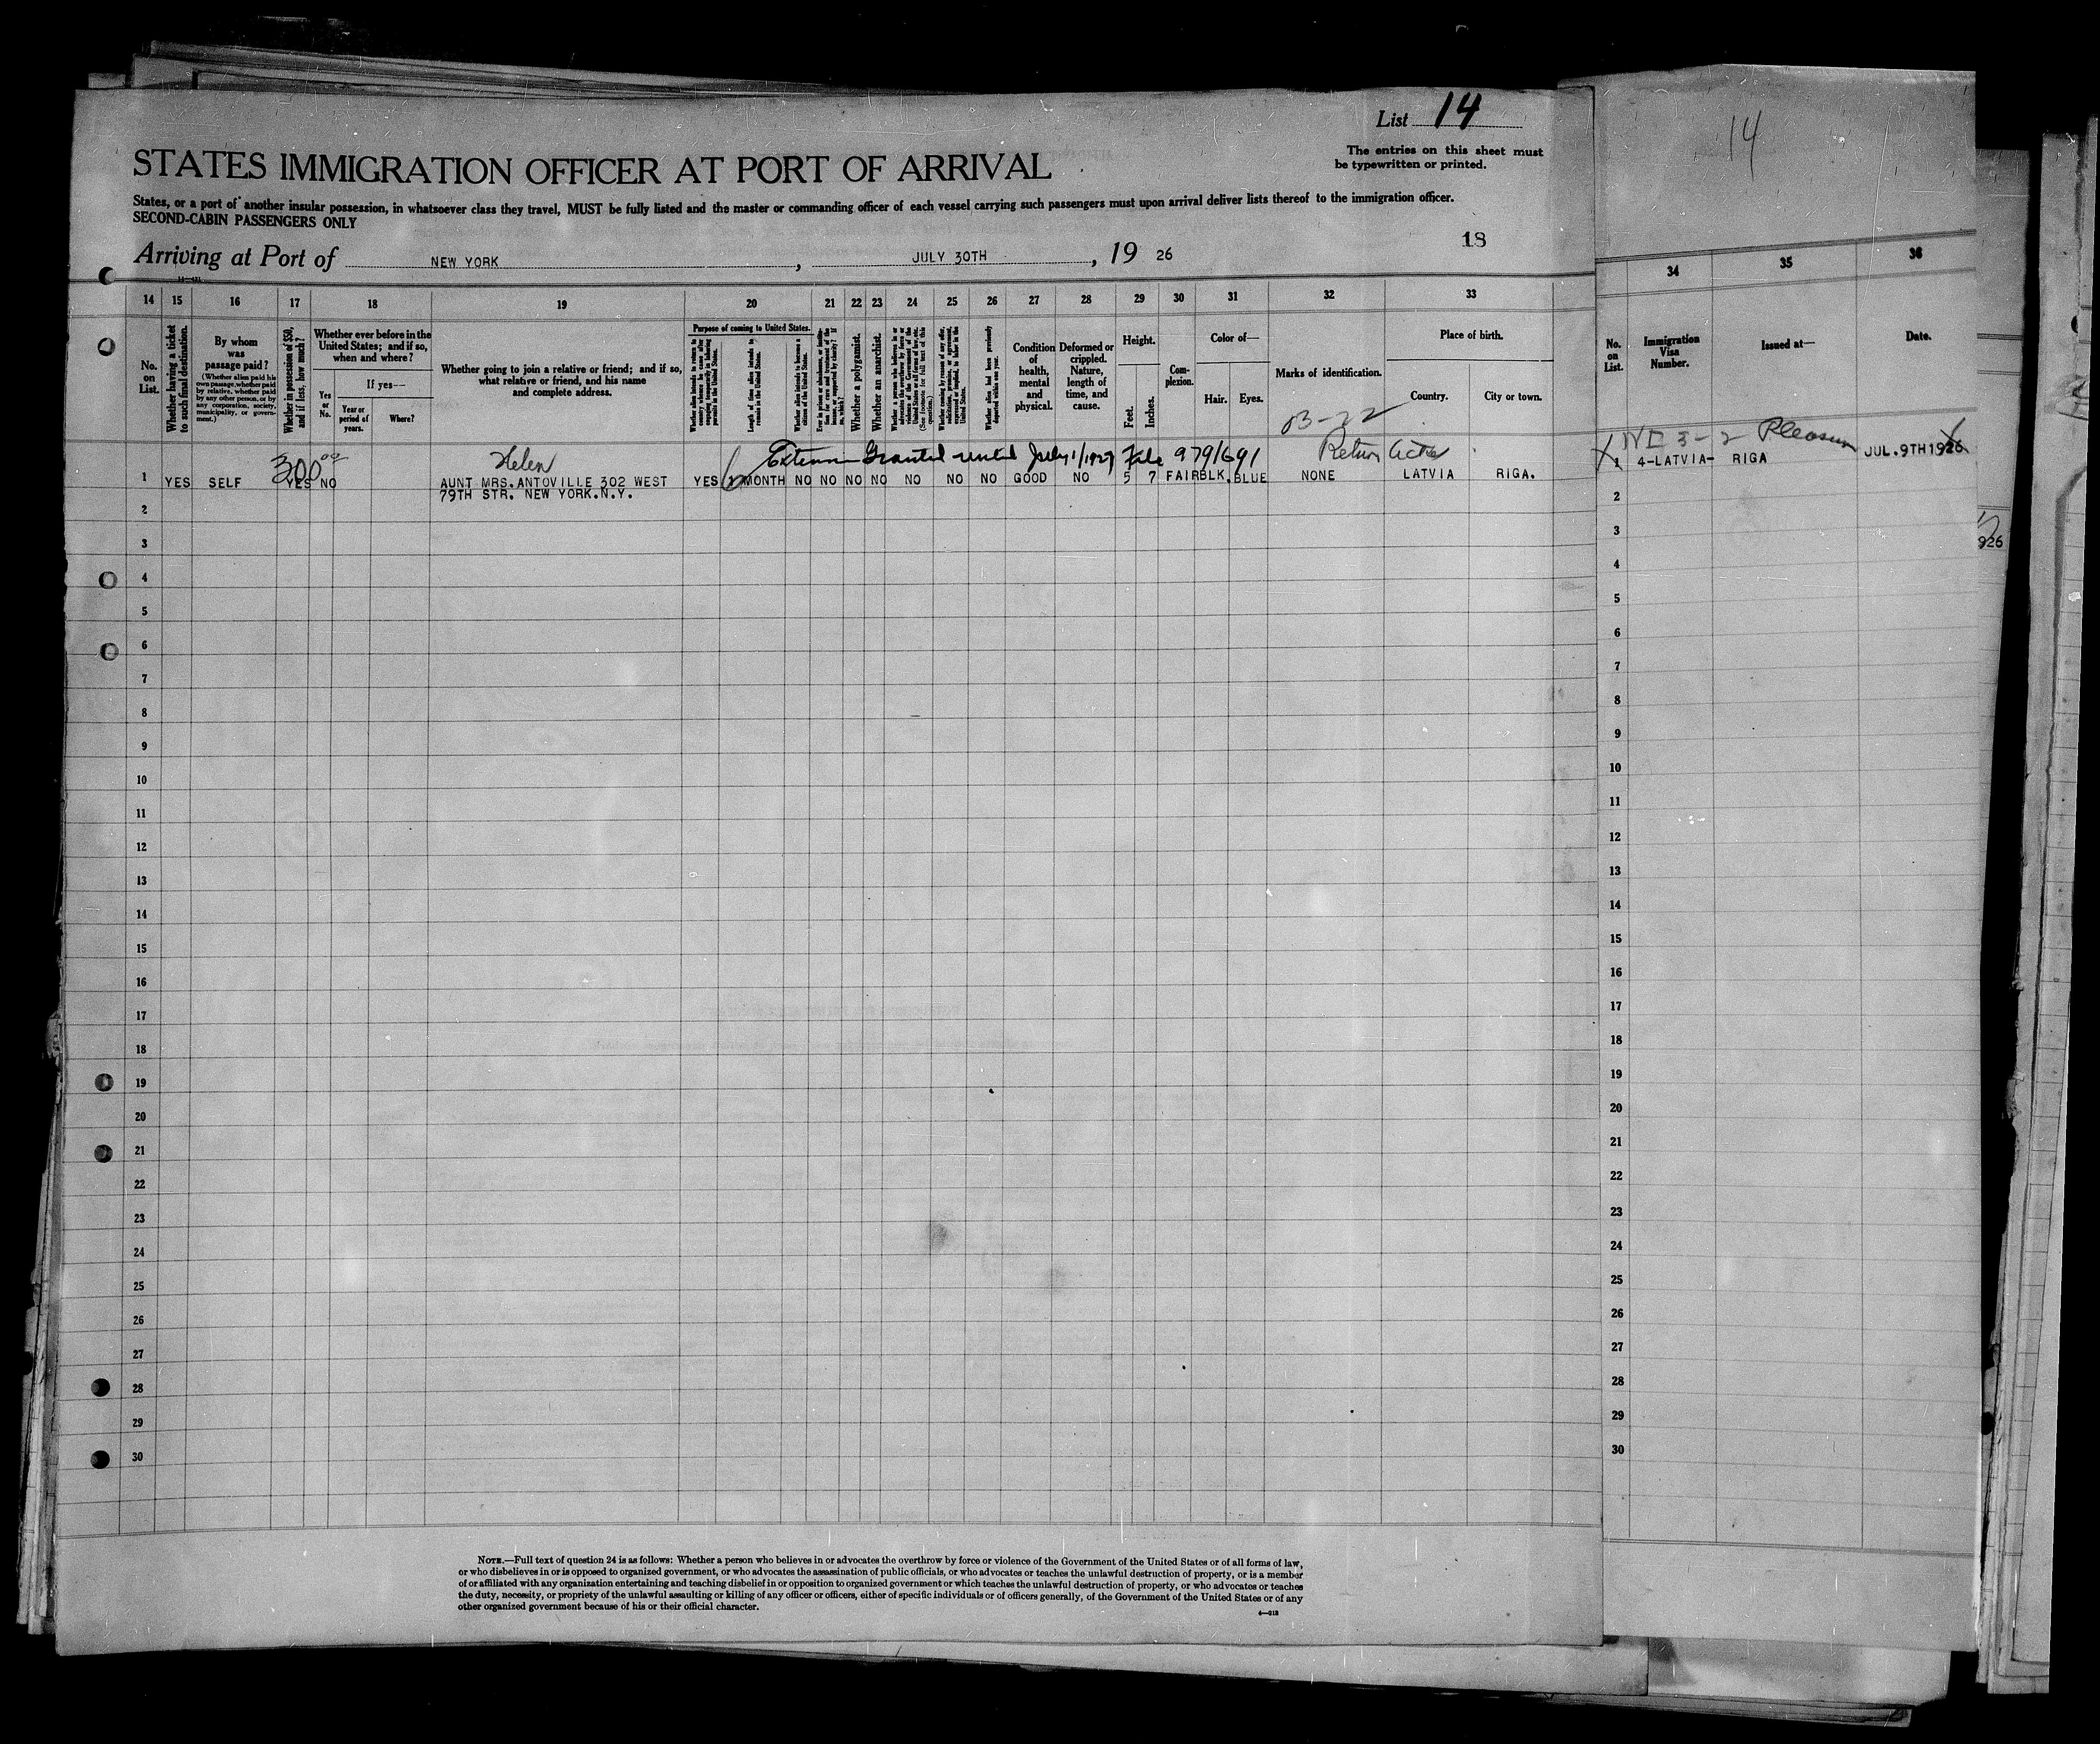 List 14
The entries on this sheet must
be typewritten or printed.
STATES IMMIGRATION OFFICER AT PORT OF ARRIVAL
States, or a port of another insular possession, in whatsoever class they travel, MUST be fully listed and the master or commanding officer of each vessel carrying such passengers must upon arrival deliver lists thereof to the immigration officer.
SECOND-CABIN PASSENGERS ONLY
18
Arriving at Port of NEW YORK, JULY 30TH, 19 26
14 15 16 17 18 19 20 21 22 23 24 25 26 27 28 29 30 31 32 33
No. on List.
Whether having a ticket to such final destination.
By whom was passage paid?
(Whether alien paid his own passage, whether paid by relative, whether paid by any other person, or by any corporation, society, municipality, or government.)
Whether in possession of $50, and if less, how much?
Whether ever before in the United States; and if so, when and where?
Yes or No.
If yes—
Year or period of years.
Where?
Whether going to join a relative or friend; and if so, what relative or friend, and his name and complete address.
Purpose of coming to United States.
Length of time alien intends to remain in the United States.
Whether alien intends to become a citizen of the United States.
Whether a polygamist.
Whether an anarchist.
Condition of health, mental and physical.
Deformed or crippled. Nature, length of time, and cause.
Height.
Feet. Inches.
Complexion.
Color of—
Hair. Eyes.
Marks of identification.
Place of birth.
Country. City or town.
300 00
Helen
Granted until July 1/1927 File 979/691
1 YES SELF YES NO AUNT MRS.ANTOVILLE 302 WEST YES 6 MONTH NO NO NO NO NO NO NO GOOD NO 5 7 FAIR BLK. BLUE NONE LATVIA RIGA.
79TH STR. NEW YORK.N.Y.
2
3
4
5
6
7
8
9
10
11
12
13
14
15
16
17
18
19
20
21
22
23
24
25
26
27
28
29
30
NOTE.—Full text of question 24 is as follows: Whether a person who believes in or advocates the overthrow by force or violence of the Government of the United States or of all forms of law,
or who disbelieves in or is opposed to organized government, or who advocates the assassination of public officials, or who advocates or teaches the unlawful destruction of property, or is a member
of or affiliated with any organization entertaining and teaching disbelief in or opposition to organized government or which teaches the unlawful destruction of property, or who advocates or teaches
the duty, necessity, or propriety of the unlawful assaulting or killing of any officer or officers, either of specific individuals or of officers generally, of the Government of the United States or of any
other organized government because of his or their official character.
14
34 35 36
No. on List.
Immigration Visa Number.
Issued at—
Date.
3-2 Pleasure
1 4-LATVIA- RIGA JUL.9TH1926
2
3
4
5
6
7
8
9
10
11
12
13
14
15
16
17
18
19
20
21
22
23
24
25
26
27
28
29
30
926